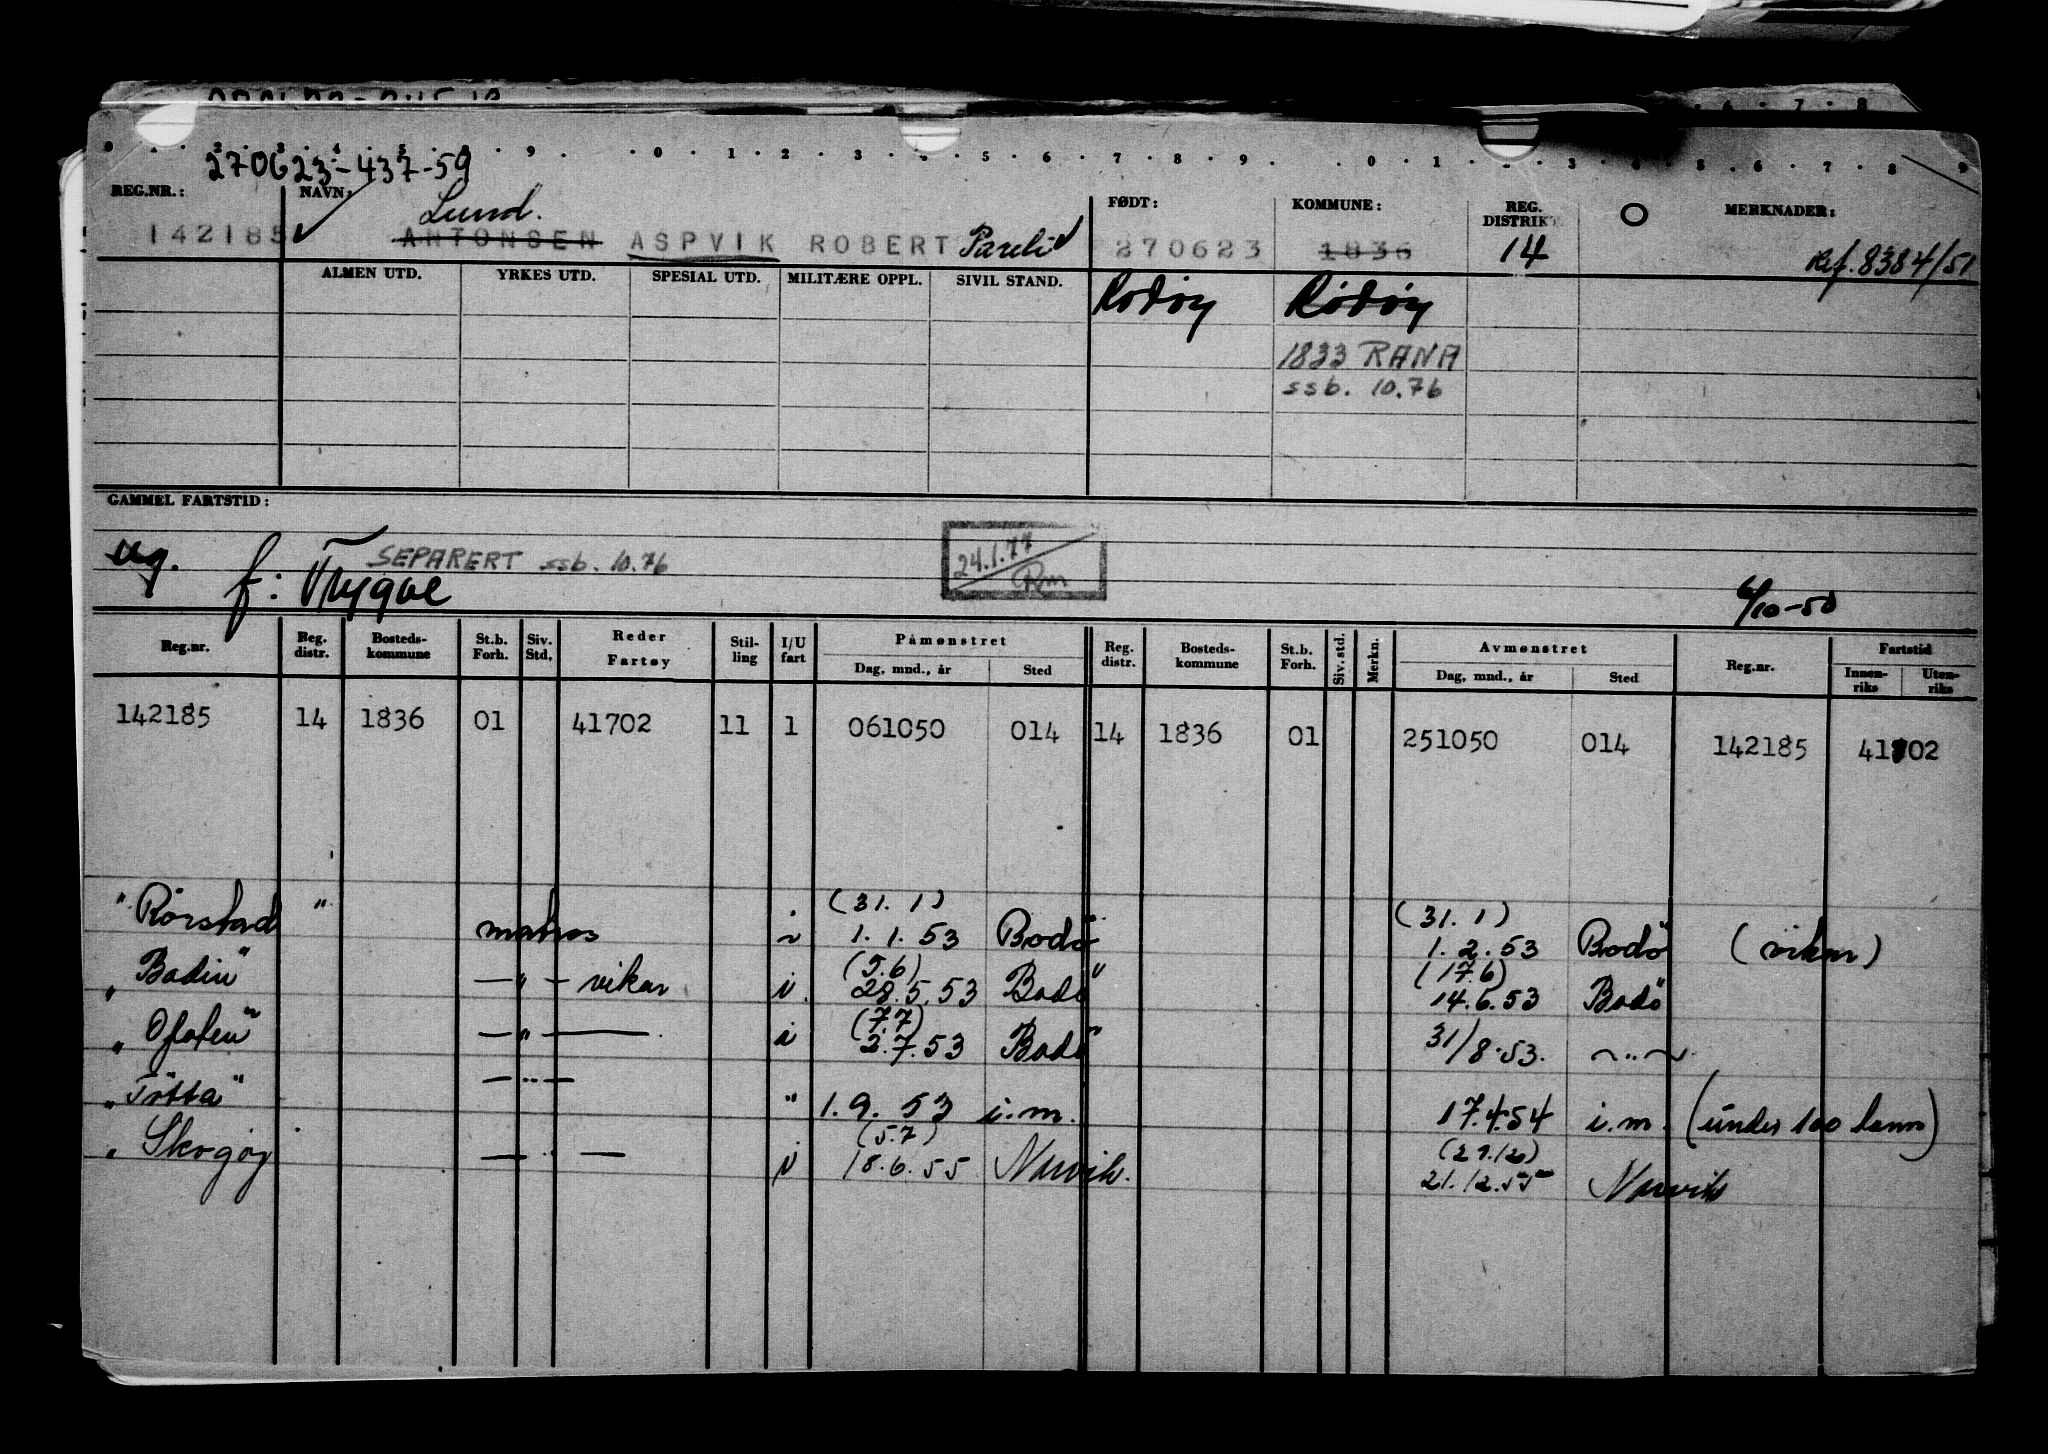 270623-437-59
REG.NR.: NAVN: FØDT: KOMMUNE: REG. DISTRIKT MERKNADER:
Lund.
142185 ANTONSEN ASPVIK ROBERT Pareli 270623 1836 14 Ref. 8384/51
ALMEN UTD. YRKES UTD. SPESIAL UTD. MILITÆRE OPPL. SIVIL STAND.
Rødøy Rødøy
1833 RANA
ssb. 10.76
GAMMEL FARTSTID:
ug. SEPARERT ssb. 10.76 24.1.77
f: Trygve Rm 6/10-50
Reg.nr. Reg. distr. Bosteds-kommune St.b. Forh. Siv. Std. Reder Fartøy Stil-ling I/U fart Påmønstret Dag, mnd., år Sted Reg. distr. Bosteds-kommune St.b. Forh. Siv. std. Merkn. Avmønstret Dag, mnd., år Sted Reg.nr. Fartstid Innen-riks Uten-riks
142185 14 1836 01 41702 11 1 061050 014 14 1836 01 251050 014 142185 41702
(31.1) (31.1)
"Rørstad" matros i 1.1.53 Bodø 1.2.53 Bodø (vikar)
(5.6) (17.6)
"Bodin" — " — vikar i. 28.5.53 Bodø 14.6.53 Bodø
(7.7)
"Ofoten" — " — i 2.7.53 Bodø 31/8.53. — " —
"Tøtta" — " — " 1.9.53 i.m. 17.4.54 i.m. (under 100 tonn)
(5.7) (29.12)
"Skogøy — " — i 18.6.55 Narvik. 21.12.55 Narvik